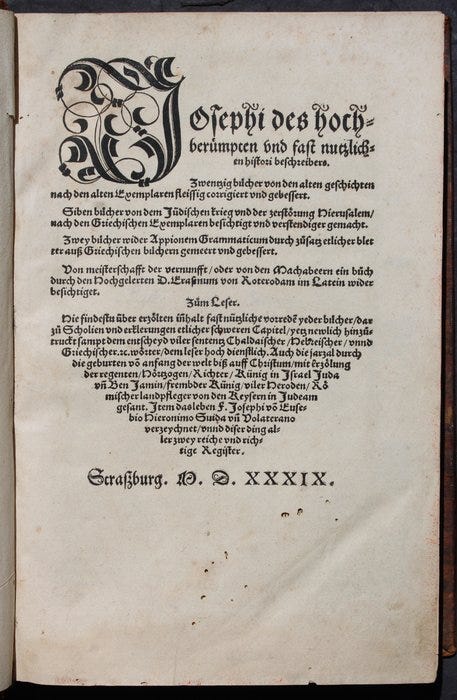 Josephi des hoch-
berümpten vnd fast nutzlich-
en histori beschreibers.
Zwentzig bücher von den alten geschichten
nach den alten Exemplaren fleissig corrigiert vnd gebessert.
Siben bücher von dem Jüdischen krieg vnd der zerstörung Hierusalem/
nach den Griechischen Exemplaren besichtigt vnd verstendiger gemacht.
Zwey bücher wider Appionem Grammaticum durch zůsatz etlicher blet
ter auß Griechischen büchern gemeert vnd gebessert.
Von meisterschafft der vernunfft/ oder von den Machabeern ein bůch
durch den Hochgelerten D. Erasmum von Roterodam im Latein wider
besichtiget.
Zům Leser.
Hie findestu über erzölten iñhalt fast nützliche vorredẽ yeder bücher/ dar
zů Scholien vnd erklerungen etlicher schweren Capitel/ yetz newlich hinzů
truckt sampt dem entscheyd viler sententz Chaldaischer/ Hebreischer/ vnnd
Griechischer.ꝛc. wörter/ dem leser hoch dienstlich. Auch die jarzal durch
die geburten võ anfang der welt biß auff Christum/ mit erzölung
der regenten/ Hörtzogen/ Richter/ Künig in Israel Juda
vñ Ben Jamin/ frembder Künig/ viler Heroden/ Rö
mischer landpfleger von den Keysern in Judeam
gesant. Item das leben F. Josephi võ Euse-
bio Hieronimo Suida vñ Volaterano
verzeychnet/ vnnd diser ding al-
ler zwey reiche vnd rich-
tige Register.
Straßburg. M. D. XXXIX.